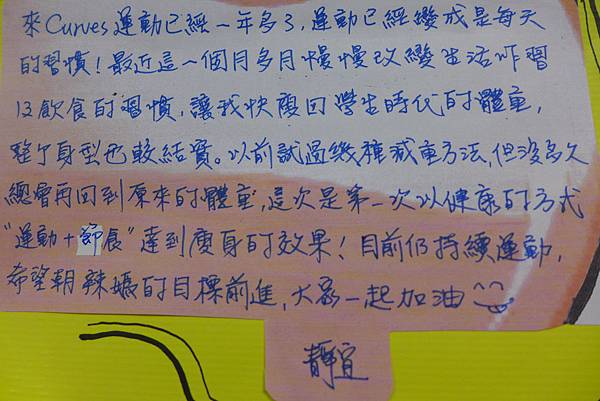 來Curves運動已經一年多了,運動已經變成是每天
的習慣!最近這一個月多月慢慢改變生活作習
以飲食的習慣,讓我快瘦回學生時代的體重,
整個身型也較結實。以前試過幾種減重方法,但沒多久
總會再回到原來的體重,這次是第一次以健康的方式
"運動+節食"達到瘦身的效果!目前仍持續運動,
希望朝辣媽的目標前進,大家一起加油
靜宜